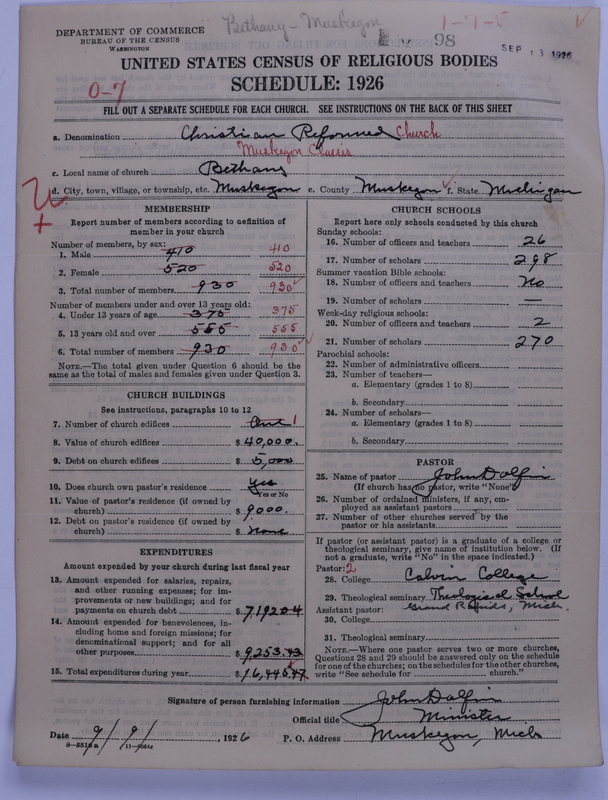 Bethany - Muskegon
1-7-5
DEPARTMENT OF COMMERCE
BUREAU OF THE CENSUS
WASHINGTON
98
SEP 13 1926
UNITED STATES CENSUS OF RELIGIOUS BODIES
SCHEDULE: 1926
0-7
FILL OUT A SEPARATE SCHEDULE FOR EACH CHURCH. SEE INSTRUCTIONS ON THE BACK OF THIS SHEET
a. Denomination Christian Reformed Church
Muskegon Classis
c. Local name of church Bethany
d. City, town, village, or township, etc. Muskegon e. County Muskegon f. State Michigan
MEMBERSHIP
Report number of members according to definition of
member in your church
Number of members, by sex:
1. Male 410 410
2. Female 520 520
3. Total number of members 930 930
Number of members under and over 13 years old:
4. Under 13 years of age 375 375
5. 13 years old and over 555 555
6. Total number of members 930 930
NOTE.—The total given under Question 6 should be
same as the total of males and females given under Question 3.
CHURCH BUILDINGS
See instructions, paragraphs 10 to 12
7. Number of church edifices One 1
8. Value of church edifices $ 40,000.
9. Debt on church edifices $ 5,000
10. Does church own pastor's residence yes
Yes or No
11. Value of pastor's residence (if owned by
church) $ 9000.
12. Debt on pastor's residence (if owned by
church) $ none
EXPENDITURES
Amount expended by your church during last fiscal year
13. Amount expended for salaries, repairs,
and other running expenses; for im-
provements or new buildings; and for
payments on church debt $ 7192 04
14. Amount expended for benevolences, in-
cluding home and foreign missions; for
denominational support; and for all
other purposes $ 9253.43
15. Total expenditures during year $ 16,445.47
CHURCH SCHOOLS
Report here only schools conducted by this church
Sunday schools:
16. Number of officers and teachers 26
17. Number of scholars 298
Summer vacation Bible schools:
18. Number of officers and teachers No
19. Number of scholars —
Week-day religious schools:
20. Number of officers and teachers 2
21. Number of scholars 270
Parochial schools:
22. Number of administrative officers
23. Number of teachers—
a. Elementary (grades 1 to 8)
b. Secondary
24. Number of scholars—
a. Elementary (grades 1 to 8)
b. Secondary
PASTOR
25. Name of pastor John Dolfin
(If church has no pastor, write "None")
26. Number of ordained ministers, if any, em-
ployed as assistant pastors
27. Number of other churches served by the
pastor or his assistants
If pastor (or assistant pastor) is a graduate of a college or
theological seminary, give name of institution below. (If
not a graduate, write "No" in the space indicated.)
Pastor: 2
28. College Calvin College
29. Theological seminary Theological School
Assistant pastor: Grand Rapids, Mich.
30. College
31. Theological seminary
NOTE.—Where one pastor serves two or more churches,
Questions 28 and 29 should be answered only on the schedule
for one of the churches; on the schedules for the other churches,
write "See schedule for church."
Signature of person furnishing information John Dolfin
Official title Minister
Date 9/9/ 1926 P. O. Address Muskegon, Mich